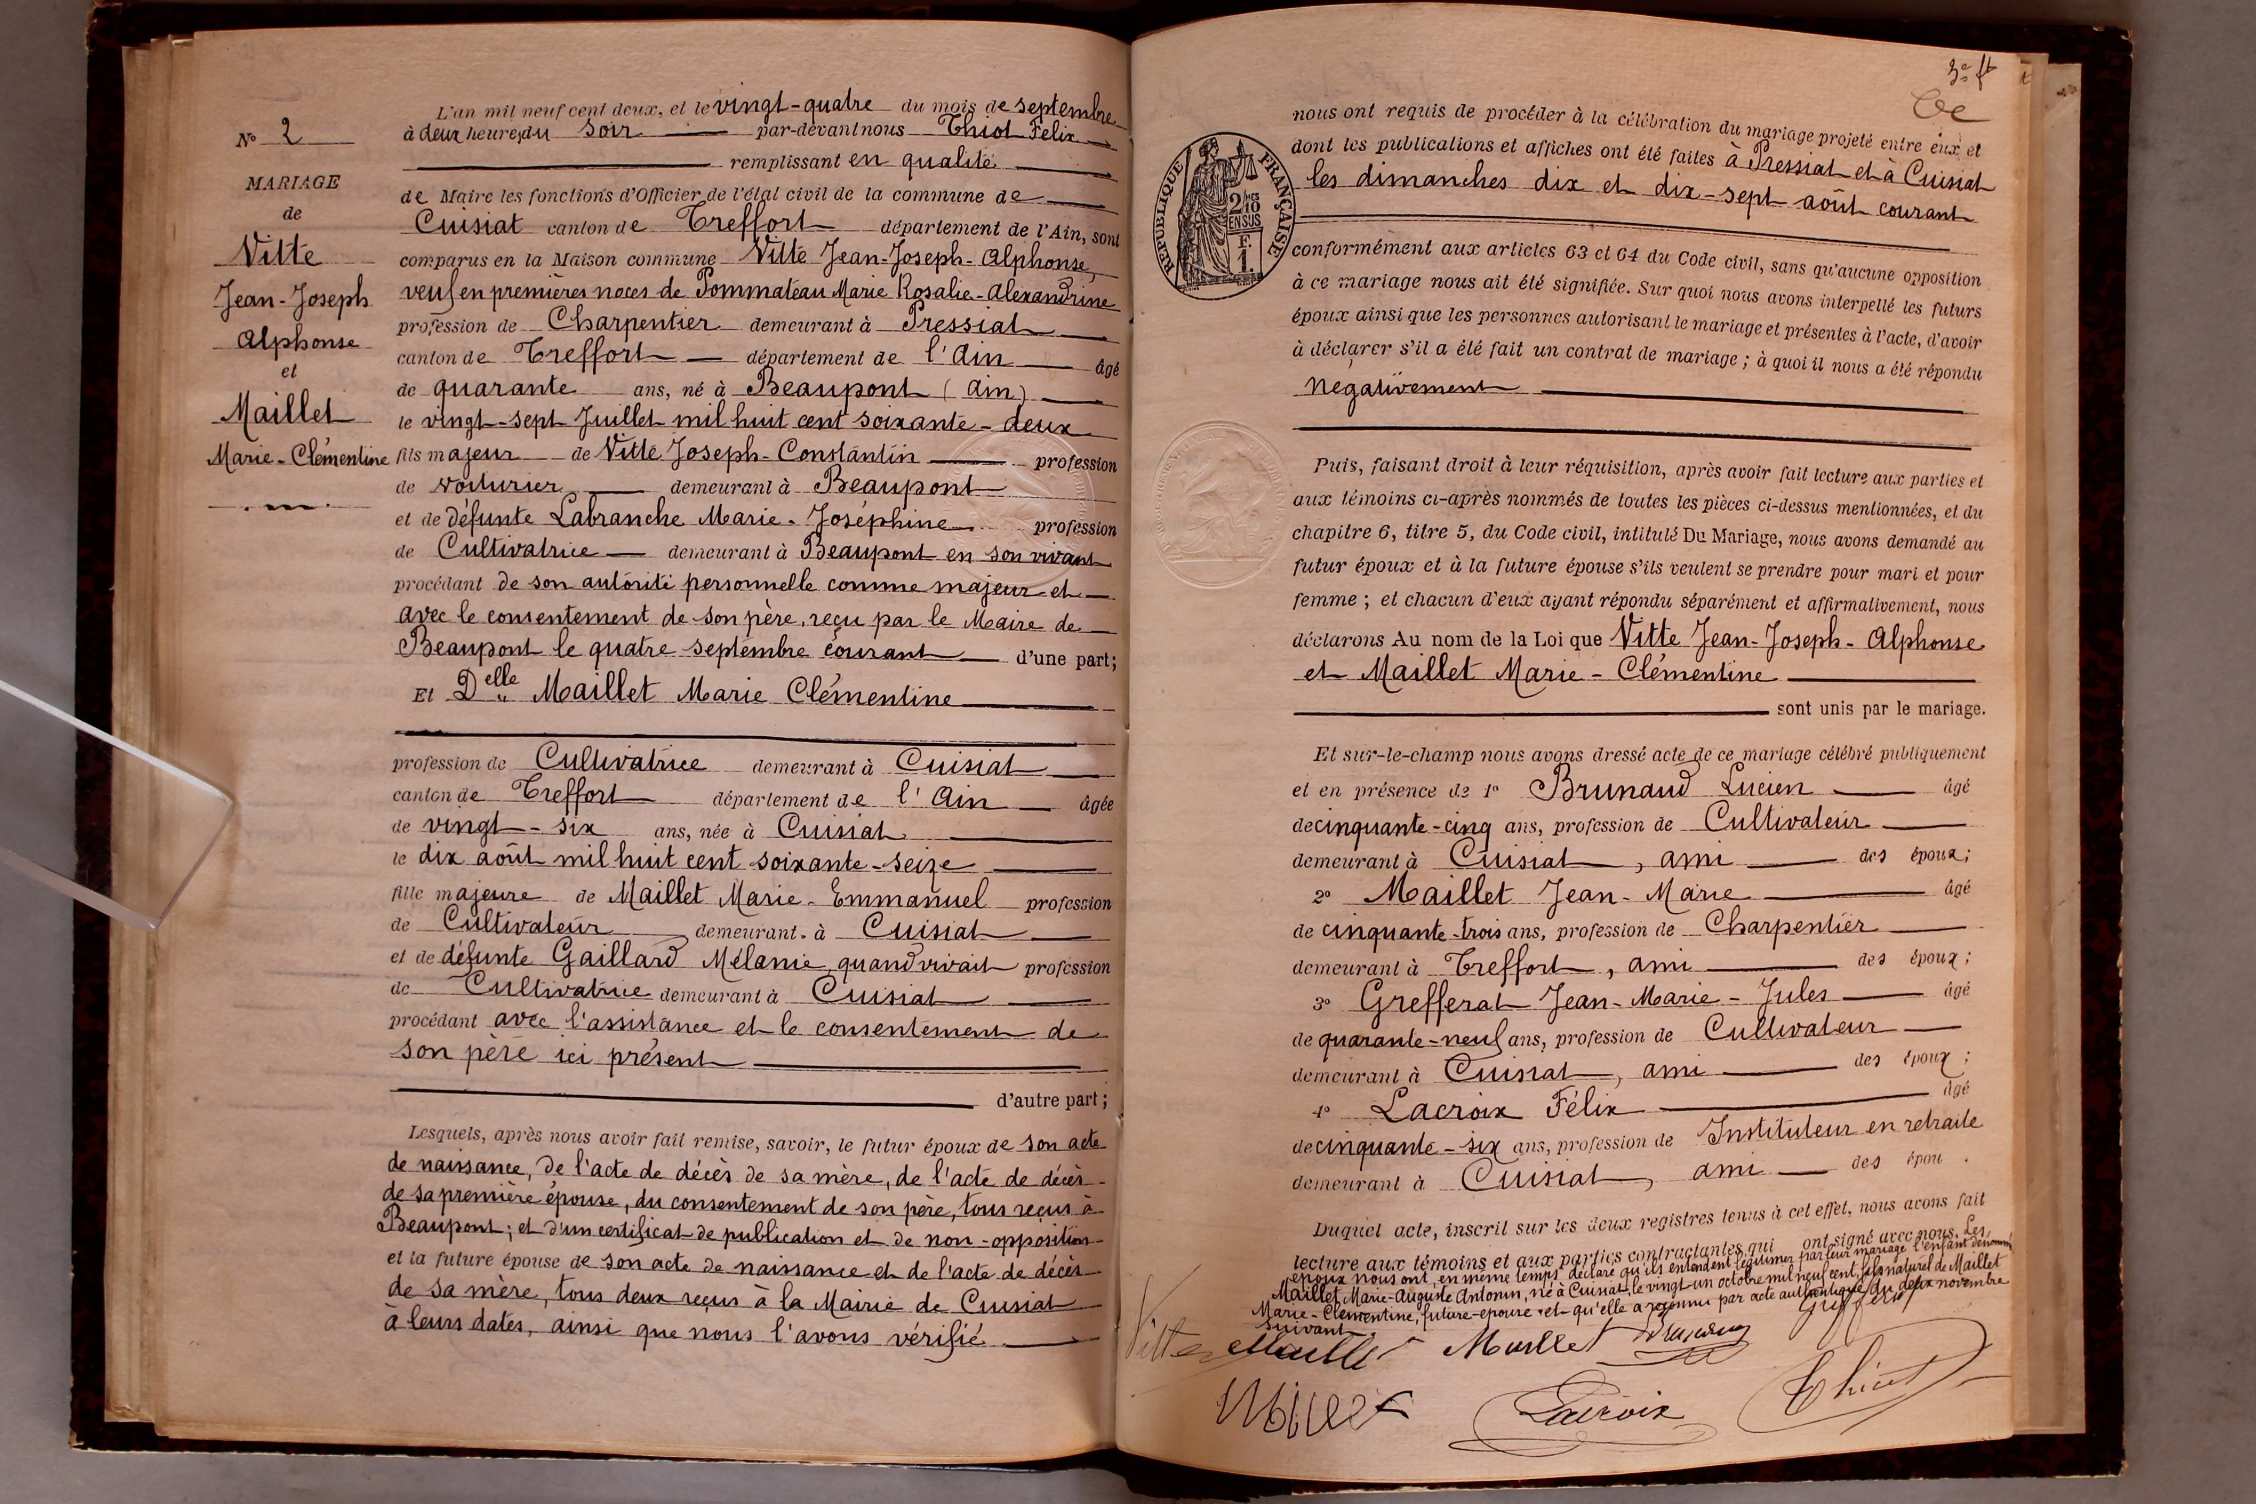 L'an mil neuf cent deux, et le vingt-quatre du mois de septembre
N° 2
à deux heures du soir par-devant nous Thiot Félix
remplissant en qualité
MARIAGE
de Maire les fonctions d'Officier de l'état civil de la commune de
de
Cuisiat canton de Treffort département de l'Ain, sont
Vitte
comparus en la Maison commune Vitte Jean-Joseph-Alphonse,
Jean-Joseph
veuf en premières noces de Pommateau Marie Rosalie-Alexandrine
profession de Charpentier demeurant à Pressiat
Alphonse
canton de Treffort département de l'Ain âgé
et
de quarante ans, né à Beaupont (Ain)
Maillet
le vingt-sept Juillet mil huit cent soixante-deux
Marie-Clémentine
fils majeur de Vitte Joseph-Constantin profession
de voiturier demeurant à Beaupont
et de défunte Labranche Marie-Joséphine profession
de Cultivatrice demeurant à Beaupont en son vivant
procédant de son autorité personnelle comme majeur et
avec le consentement de son père, reçu par le Maire de
Beaupont le quatre septembre courant d'une part;
Et Delle Maillet Marie Clémentine
profession de Cultivatrice demeurant à Cuisiat
canton de Treffort département de l'Ain âgée
de vingt-six ans, née à Cuisiat
le dix août mil huit cent soixante-seize
fille majeure de Maillet Marie-Emmanuel profession
de Cultivateur demeurant à Cuisiat
et de défunte Gaillard Mélanie quand vivait profession
de Cultivatrice demeurant à Cuisiat
procédant avec l'assistance et le consentement de
son père ici présent
d'autre part;
Lesquels, après nous avoir fait remise, savoir, le futur époux de son acte
de naissance, de l'acte de décès de sa mère, de l'acte de décès
de sa première épouse, du consentement de son père, tous reçus à
Beaupont; et d'un certificat de publication et de non-opposition
et la future épouse de son acte de naissance et de l'acte de décès
de sa mère, tous deux reçus à la Mairie de Cuisiat
à leurs dates, ainsi que nous l'avons vérifié
3e ft
nous ont requis de procéder à la célébration du mariage projeté entre eux et
dont les publications et affiches ont été faites à Pressiat et à Cuisiat
les dimanches dix et dix-sept août courant
RÉPUBLIQUE FRANÇAISE
2/10 EN SUS
F. 1.
conformément aux articles 63 et 64 du Code civil, sans qu'aucune opposition
à ce mariage nous ait été signifiée. Sur quoi nous avons interpellé les futurs
époux ainsi que les personnes autorisant le mariage et présentes à l'acte, d'avoir
à déclarer s'il a été fait un contrat de mariage; à quoi il nous a été répondu
négativement
Puis, faisant droit à leur réquisition, après avoir fait lecture aux parties et
aux témoins ci-après nommés de toutes les pièces ci-dessus mentionnées, et du
chapitre 6, titre 5, du Code civil, intitulé Du Mariage, nous avons demandé au
futur époux et à la future épouse s'ils veulent se prendre pour mari et pour
femme; et chacun d'eux ayant répondu séparément et affirmativement, nous
déclarons Au nom de la Loi que Vitte Jean-Joseph-Alphonse
et Maillet Marie-Clémentine
sont unis par le mariage.
Et sur-le-champ nous avons dressé acte de ce mariage célébré publiquement
et en présence de 1° Brunaud Lucien âgé
de cinquante-cinq ans, profession de Cultivateur
demeurant à Cuisiat, ami des époux;
2° Maillet Jean-Marie âgé
de cinquante-trois ans, profession de Charpentier
demeurant à Treffort, ami des époux;
3° Grefferat Jean-Marie-Jules âgé
de quarante-neuf ans, profession de Cultivateur
demeurant à Cuisiat, ami des époux;
4° Lacroix Félix âgé
de cinquante-six ans, profession de Instituteur en retraite
demeurant à Cuisiat, ami des épou .
Duquel acte, inscrit sur les deux registres tenus à cet effet, nous avons fait
lecture aux témoins et aux parties contractantes qui ont signé avec nous. Les
époux nous ont, en même temps déclaré qu'ils entendent légitimer par leur mariage l'enfant dénommé
Maillet Marie-Auguste Antonin, né à Cuisiat le vingt-un octobre mil neuf cent, fils naturel de Maillet
Marie-Clémentine, future-épouse et qu'elle a reconnu par acte authentique du deux novembre
suivant
Vitte Maillet Maillet Brunaud Grefferat
Lacroix Thiot